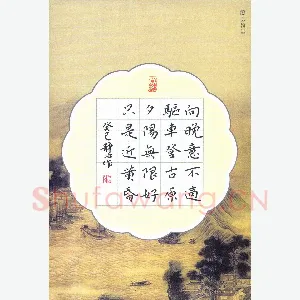 向晚意不適
驅車登古原
夕陽無限好
只是近黄昏
癸巳静山作
Shufawang.CN